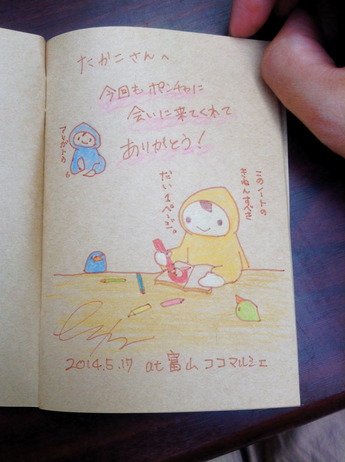 たかこさんへ
今回もポンチョに
会いに来てくれて
ありがとう!
アリガトウ
このノートの
きねんすべき
だい1ページ。
2014.5.17 at 富山 ココマルシェ